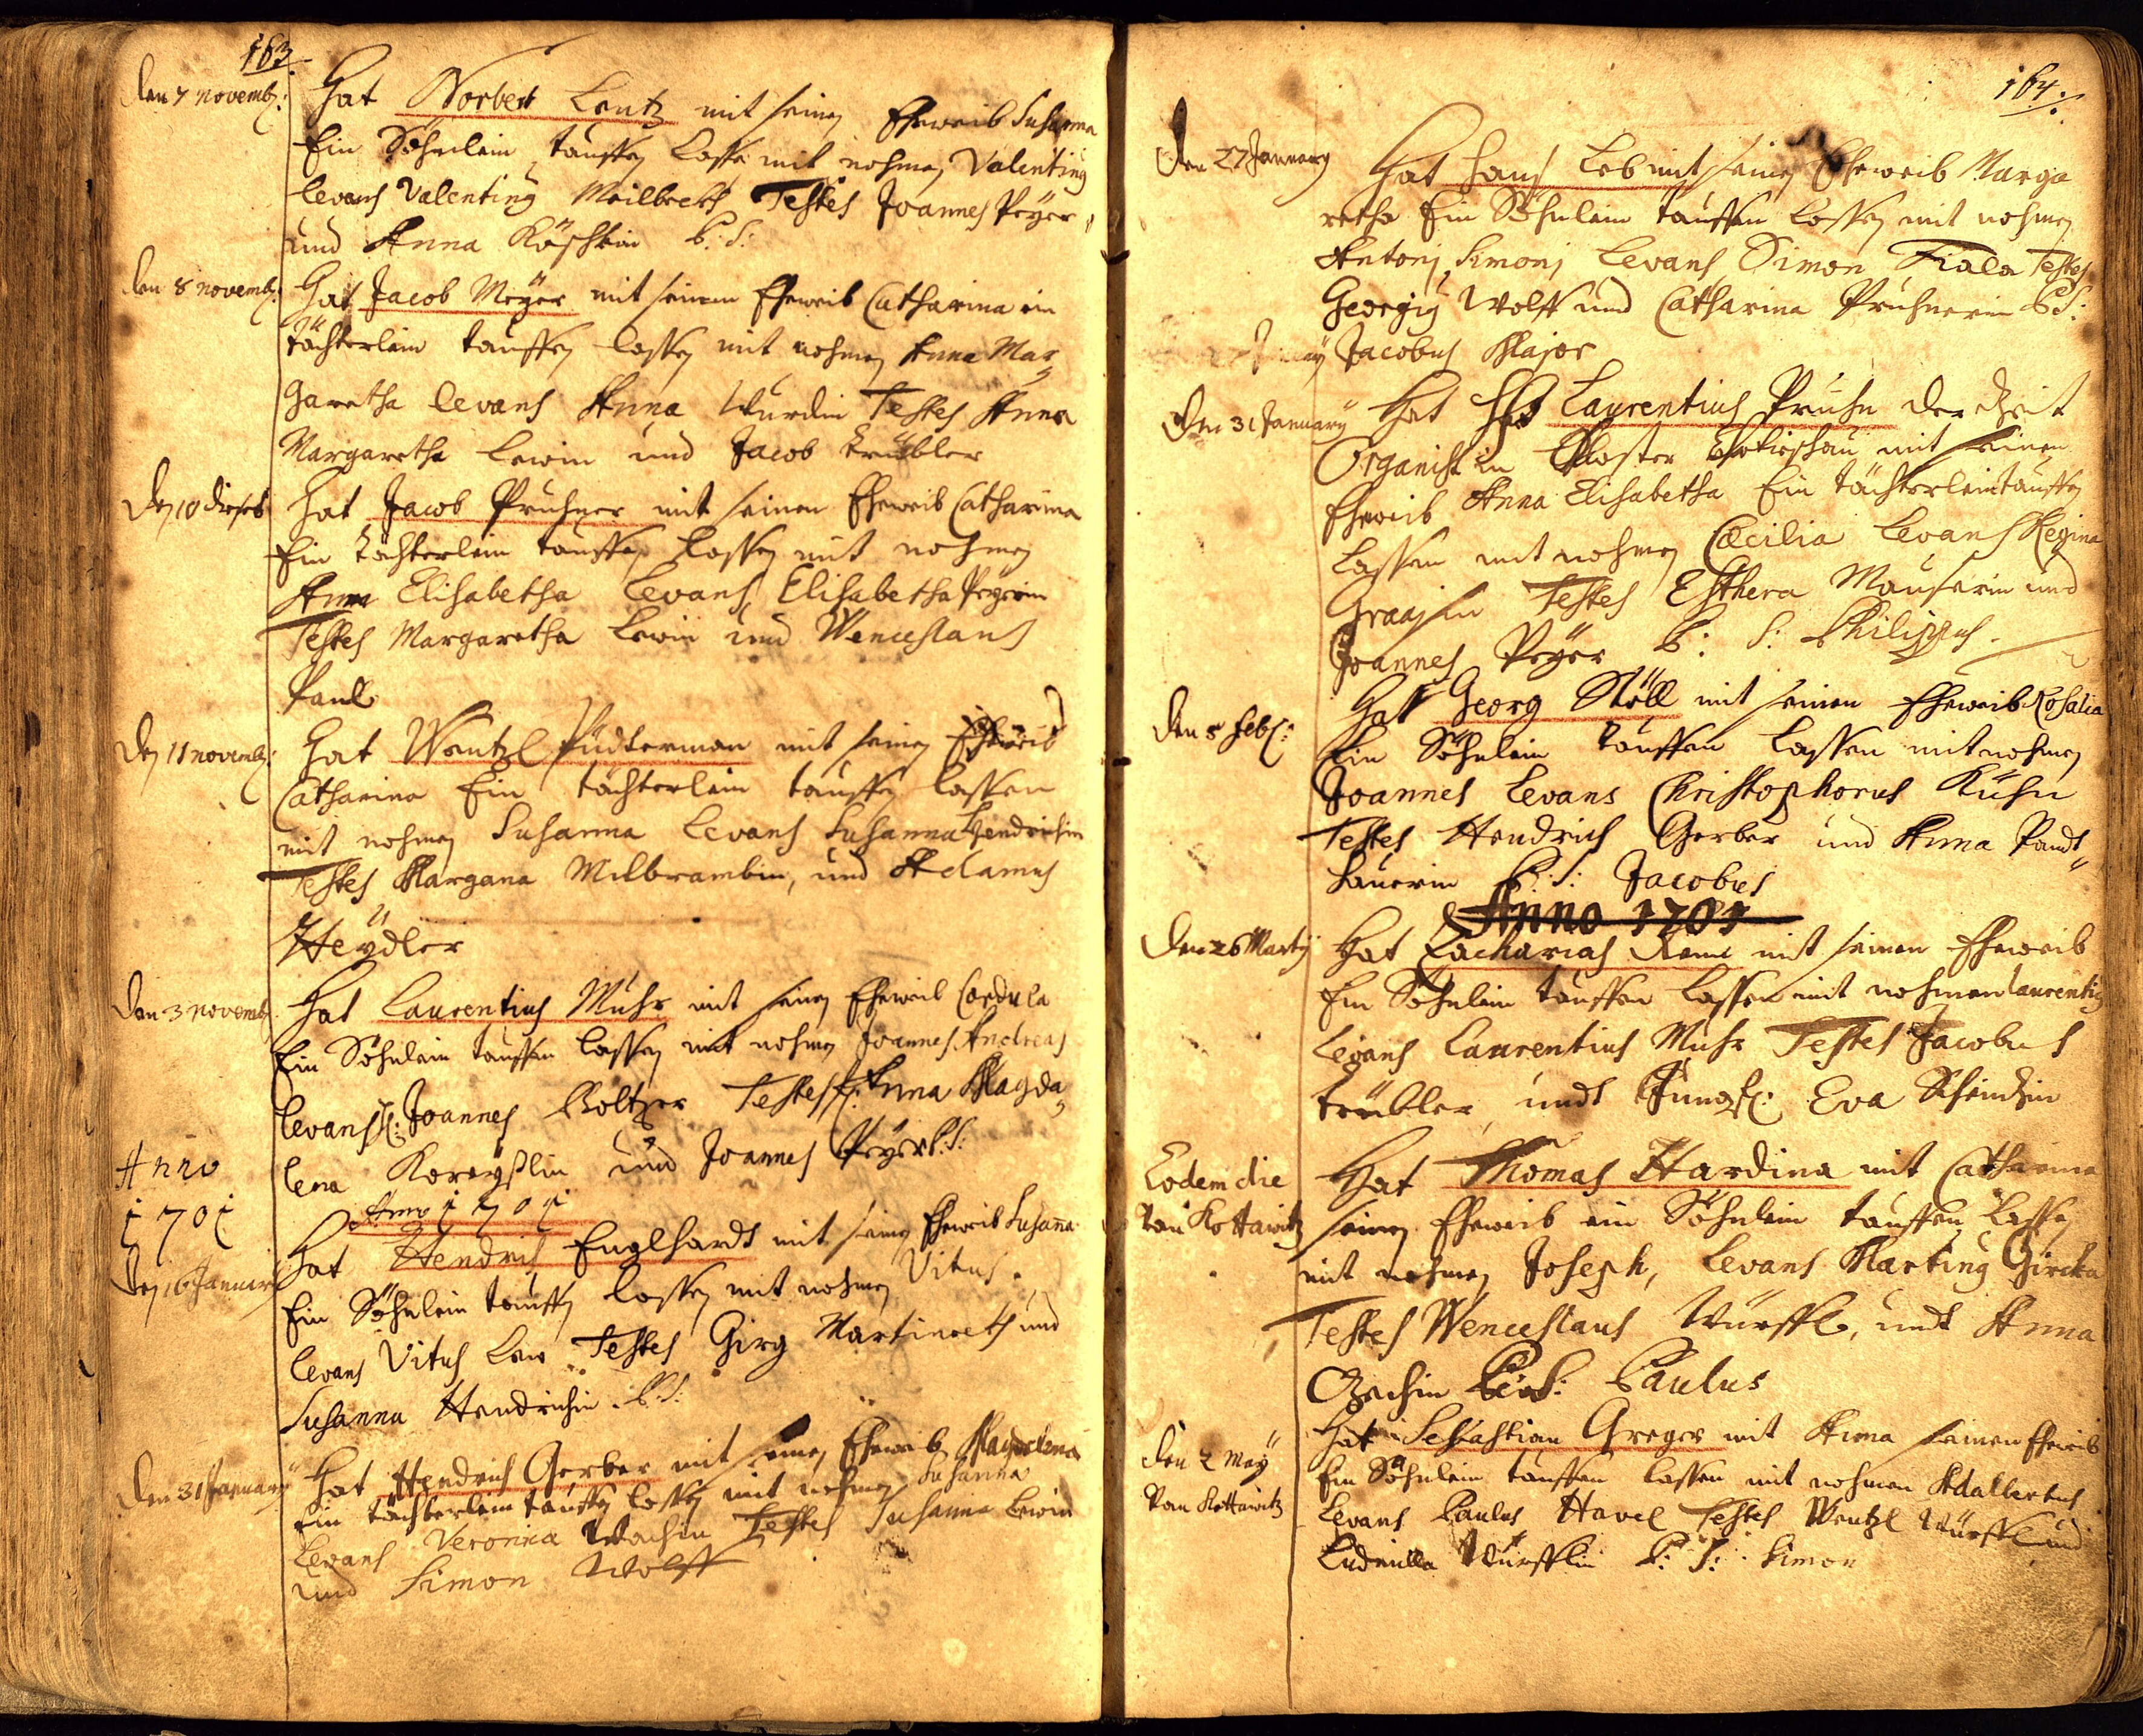 163.
den 7 novemb:
Hat Norbert Lentz mit seinen Eheweib Susanna
Ein Söhnlein tauffen lasse mit nohmen Valentinus
levans Valentinus Meilbeck Testes Joannes Peyer
und Anna Köschlin P. S:
den 8 novemb:
Hat Jacob Meyer mit seinem Eheweib Catharina ein
töchterlein tauffen lassen mit nohmen Anna Mar
garetha levans Anna Wurdin Testes Anna
Margaretha Lewin und Jacob Trübler
den 10 dieses
Hat Jacob Pruhner mit seinen Eheweib Catharina
Ein töchterlein tauffen lassen mit nohmen
Anna Elisabetha Levans Elisabetha Peyerin
Testes Margaretha Lewin und Wenceslaus
Paul
den 11 novemb:
Hat Wentzl Pudterman mit seinen Eheweib
Catharina Ein töchterlein tauffen lassen
mit nohmen Susanna Levans Susanna Hendrichin
Testes Margana Milbrambin, und Adamus
Heydler
den 3 novemb.
Hat Laurentius Muhr mit seinen Eheweib Cordula
Ein Söhnlein tauffen lassen mit nohmen Joannes Andreas
levans H: Joannes Holtzer Testes F: Anna Magda
lena Koreyßlin und Joannes Peyer P. S:
Anno
1701
Anno 1701
den 16 January
Hat Hendrich Englhardt mit seinen Eheweib Susana
Ein Söhnlein tauffen lassen mit nohmen Vitus.
levans Vitus Lew Testes Girg Martinetz und
Susanna Hendrichin P. S:
den 31 January
Hat Hendrich Gerber mit seinen Eheweib Magdalena
Ein töchterlein tauffen lassen mit nohmen Susanna
Levans Veronica Wachin Testes Susanna Lewin
und Simon Wolff
164.
den 27 January
Hat Hans Leb mit seinen Eheweib Marga
retha Ein Söhnlein tauffen lassen mit nohmen
Antonj Simonj Levans Simon Fiala Testes
Georgius Wolff und Catharina Pruhnerin P S:
Jacobus Major
den 31 January
Hat Laurentius Pruhn der Zeit
Organist in Kloster mit seinen
Eheweib Anna Elisabetha Ein töchterlein tauffen
Lassen mit nohmen Cæcilia Levans Regina
Testes Esthera Mauserin und
Joannes Peyer P: S: Philippus.
den 8 feb:
Hat Georg Nöll mit seinen Eheweib Rosalia
Ein Söhnlein tauffen lassen mit nohmen
Joannes Levans Christophorus Kuhn
Testes Hendrich Gerber und Anna Pandt
hauerin P. S: Jacobus
Anno 1701
den 26 Marty
Hat Zacharias mit seinen Eheweib
Ein Söhnlein tauffen lassen mit nohmen laurentius
Levans Laurentius Muhr Testes Jacobus
trübler undt Jungf: Eva
Eodem die
von Kottawitz
Hat Thomas Hardina mit Catharina
seinen Eheweib ein Söhnlein tauffen lassen
mit nohmen Joseph, Levans Martinus Gircka
Testes Wenceslaus Würffl, undt Anna
P. S: Paulus
den 2 May
von Kottawitz
Hat Sebastian Greger mit Anna seinen Eheweib
Ein Söhnlein tauffen lassen mit nohmen Adalbertus
Levans Paulus Havel Testes Wentzl Würffl und
Ludmilla Würfflin P: S: Simon